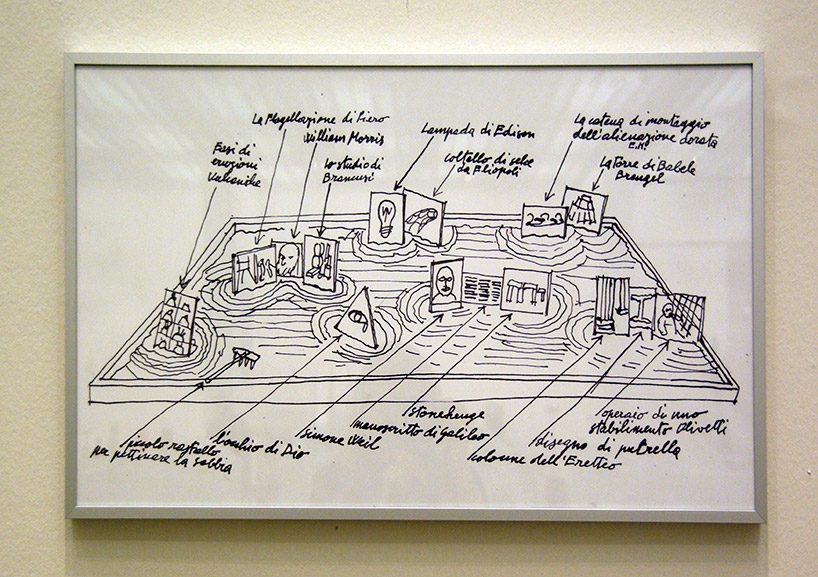 La Flagellazione di Piero
William Morris
Fasi di
eruzioni
vulcaniche
lo studio di
Brancusi
Lampada di Edison
coltello di selce
da Eliopoli
La catena di montaggio
dell'alienazione dorata
E.M.
La Torre di Babele
Breugel
piccolo rastrello
per pettinare la sabbia
l'occhio di Dio
Simone Weil
Stonehenge
manoscritto di Galileo
colonne dell'Eretteo
disegno di putrella
operaio di uno
stabilimento Olivetti